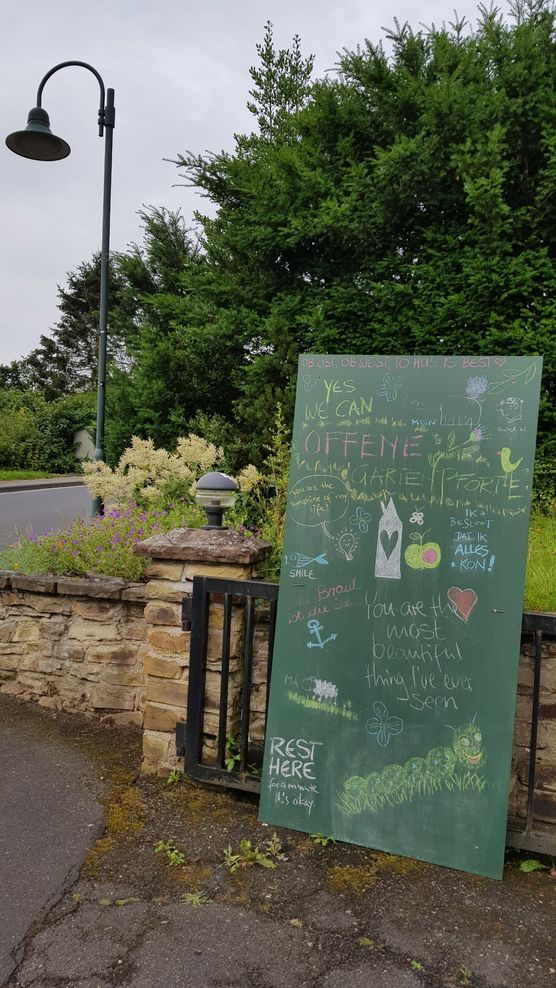 OB OST, OB WEST, TO HUS IS BEST
YES
WE CAN
MOIN
OFFENE
GARTENPFORTE
you are the
sunshine of my
life!
IK
BESLOOT
DAT IK
ALLES
KON!
SMILE
Braut
ist die
You are the
most
beautiful
thing I've ever
seen
REST
HERE
for a minute
It's okay.